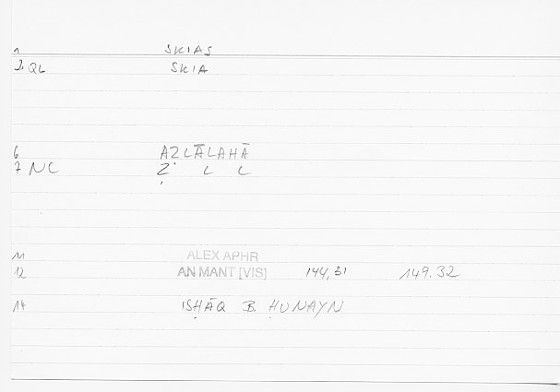 1 SKIAS
2 QL SKIA
6 AẒLĀLAHĀ
7 NC Ẓ L L
11 ALEX APHR
12 AN MANT [VIS] 144,31 149.32
14 ISḤĀQ B. ḤUNAYN